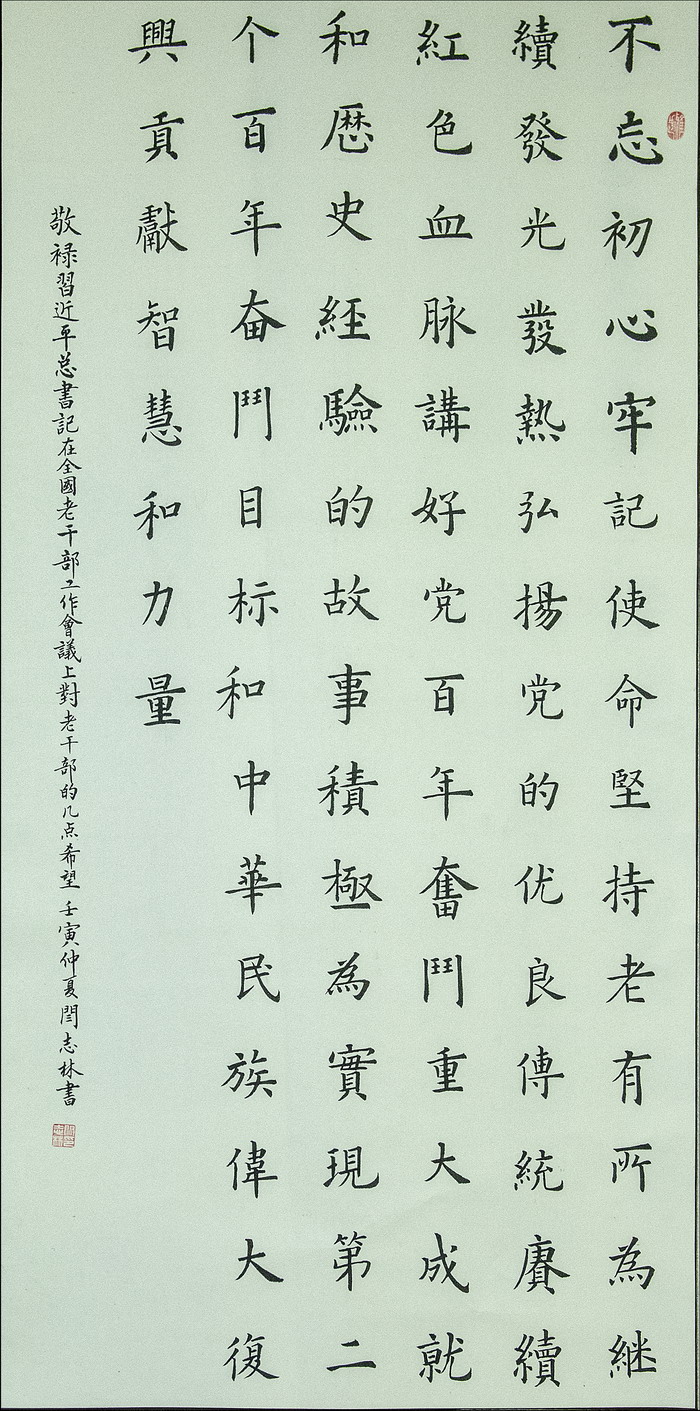 不忘初心牢記使命堅持老有所為继
續發光發熱弘揚党的优良傳統賡續
紅色血脉講好党百年奮鬥重大成就
和歴史経驗的故事積極為實現第二
个百年奋鬥目标和中華民族偉大復
興貢獻智慧和力量
敬禄習近平总書記在全國老干部工作會議上對老干部的几点希望 壬寅仲夏閆志林書